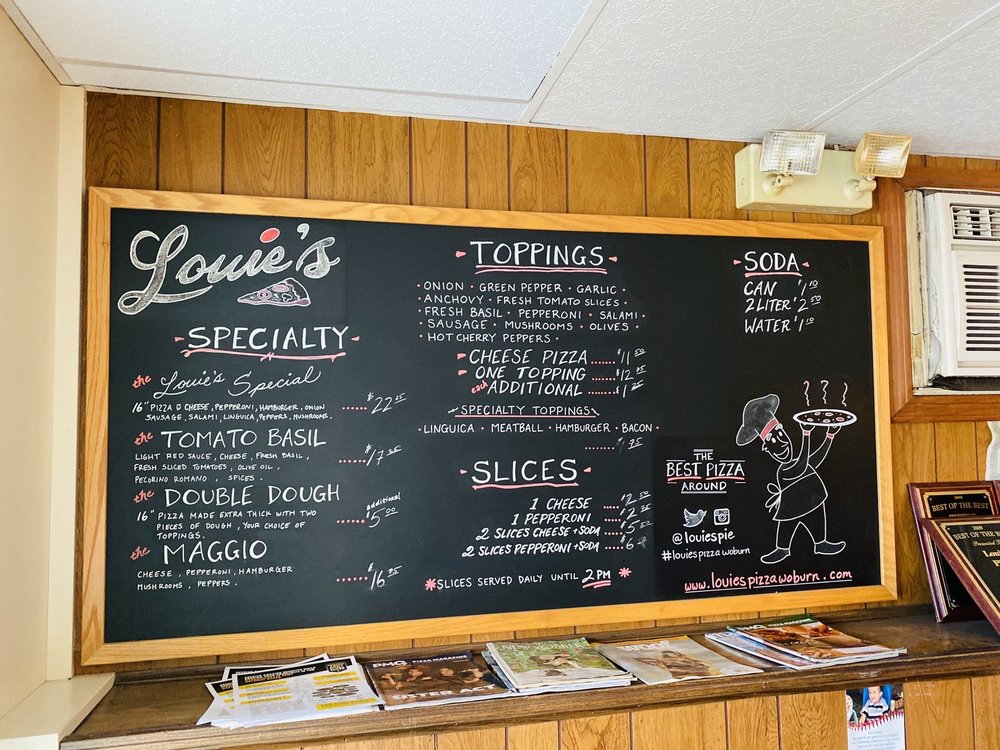 Louie's
SPECIALTY
the Louie's Special
16" PIZZA CHEESE, PEPPERONI, HAMBURGER, ONION
SAUSAGE, SALAMI, LINGUICA, PEPPERS, MUSHROOMS. ...... $22
the TOMATO BASIL
LIGHT RED SAUCE, CHEESE, FRESH BASIL,
FRESH SLICED TOMATOES, OLIVE OIL, ...... $17
PECORINO ROMANO, SPICES.
the DOUBLE DOUGH
16" PIZZA MADE EXTRA THICK WITH TWO
PIECES OF DOUGH, YOUR CHOICE OF ...... additional $5.00
TOPPINGS.
the MAGGIO
CHEESE, PEPPERONI, HAMBURGER
MUSHROOMS, PEPPERS. ...... $16
- TOPPINGS -
• ONION • GREEN PEPPER • GARLIC •
• ANCHOVY • FRESH TOMATO SLICES •
• FRESH BASIL • PEPPERONI • SALAMI
• SAUSAGE • MUSHROOMS • OLIVES •
• HOT CHERRY PEPPERS •
CHEESE PIZZA ...... $11.50
ONE TOPPING ...... $12
each ADDITIONAL ...... $1
SPECIALTY TOPPINGS
LINGUICA • MEATBALL • HAMBURGER • BACON •
$1.75
- SLICES -
1 CHEESE ...... $2
1 PEPPERONI ...... $2
2 SLICES CHEESE + SODA ...... $5
2 SLICES PEPPERONI + SODA ...... $6
*SLICES SERVED DAILY UNTIL 2 PM *
- SODA -
CAN $1.10
2 LITER $2.50
WATER $1.10
THE
BEST PIZZA
AROUND
@louiespie
#louiespizzawoburn
www.louiespizzawoburn.com
BEST OF THE BEST
2008
BEST OF THE BEST
PMQ PIZZA MAGAZINE